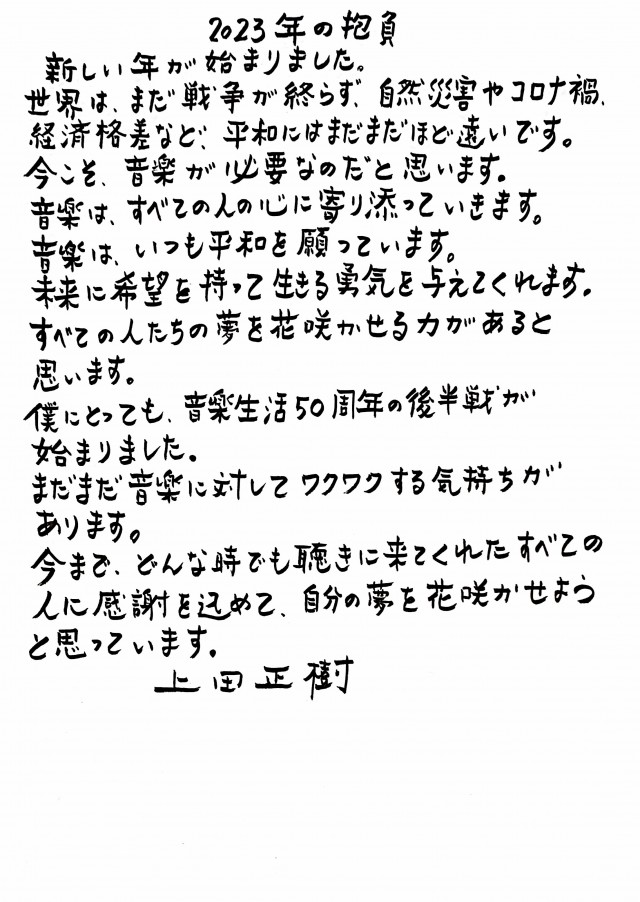 2023年の抱負
新しい年が始まりました。
世界は、まだ戦争が終らず、自然災害やコロナ禍、
経済格差など、平和にはまだまだほど遠いです。
今こそ、音楽が必要なのだと思います。
音楽は、すべての人の心に寄り添っていきます。
音楽は、いつも平和を願っています。
未来に希望を持って生きる勇気を与えてくれます。
すべての人たちの夢を花咲かせる力があると
思います。
僕にとっても、音楽生活50周年の後半戦が
始まりました。
まだまだ音楽に対してワクワクする気持ちが
あります。
今まで、どんな時でも聴きに来てくれたすべての
人に感謝を込めて、自分の夢を花咲かせよう
と思っています。
上田正樹